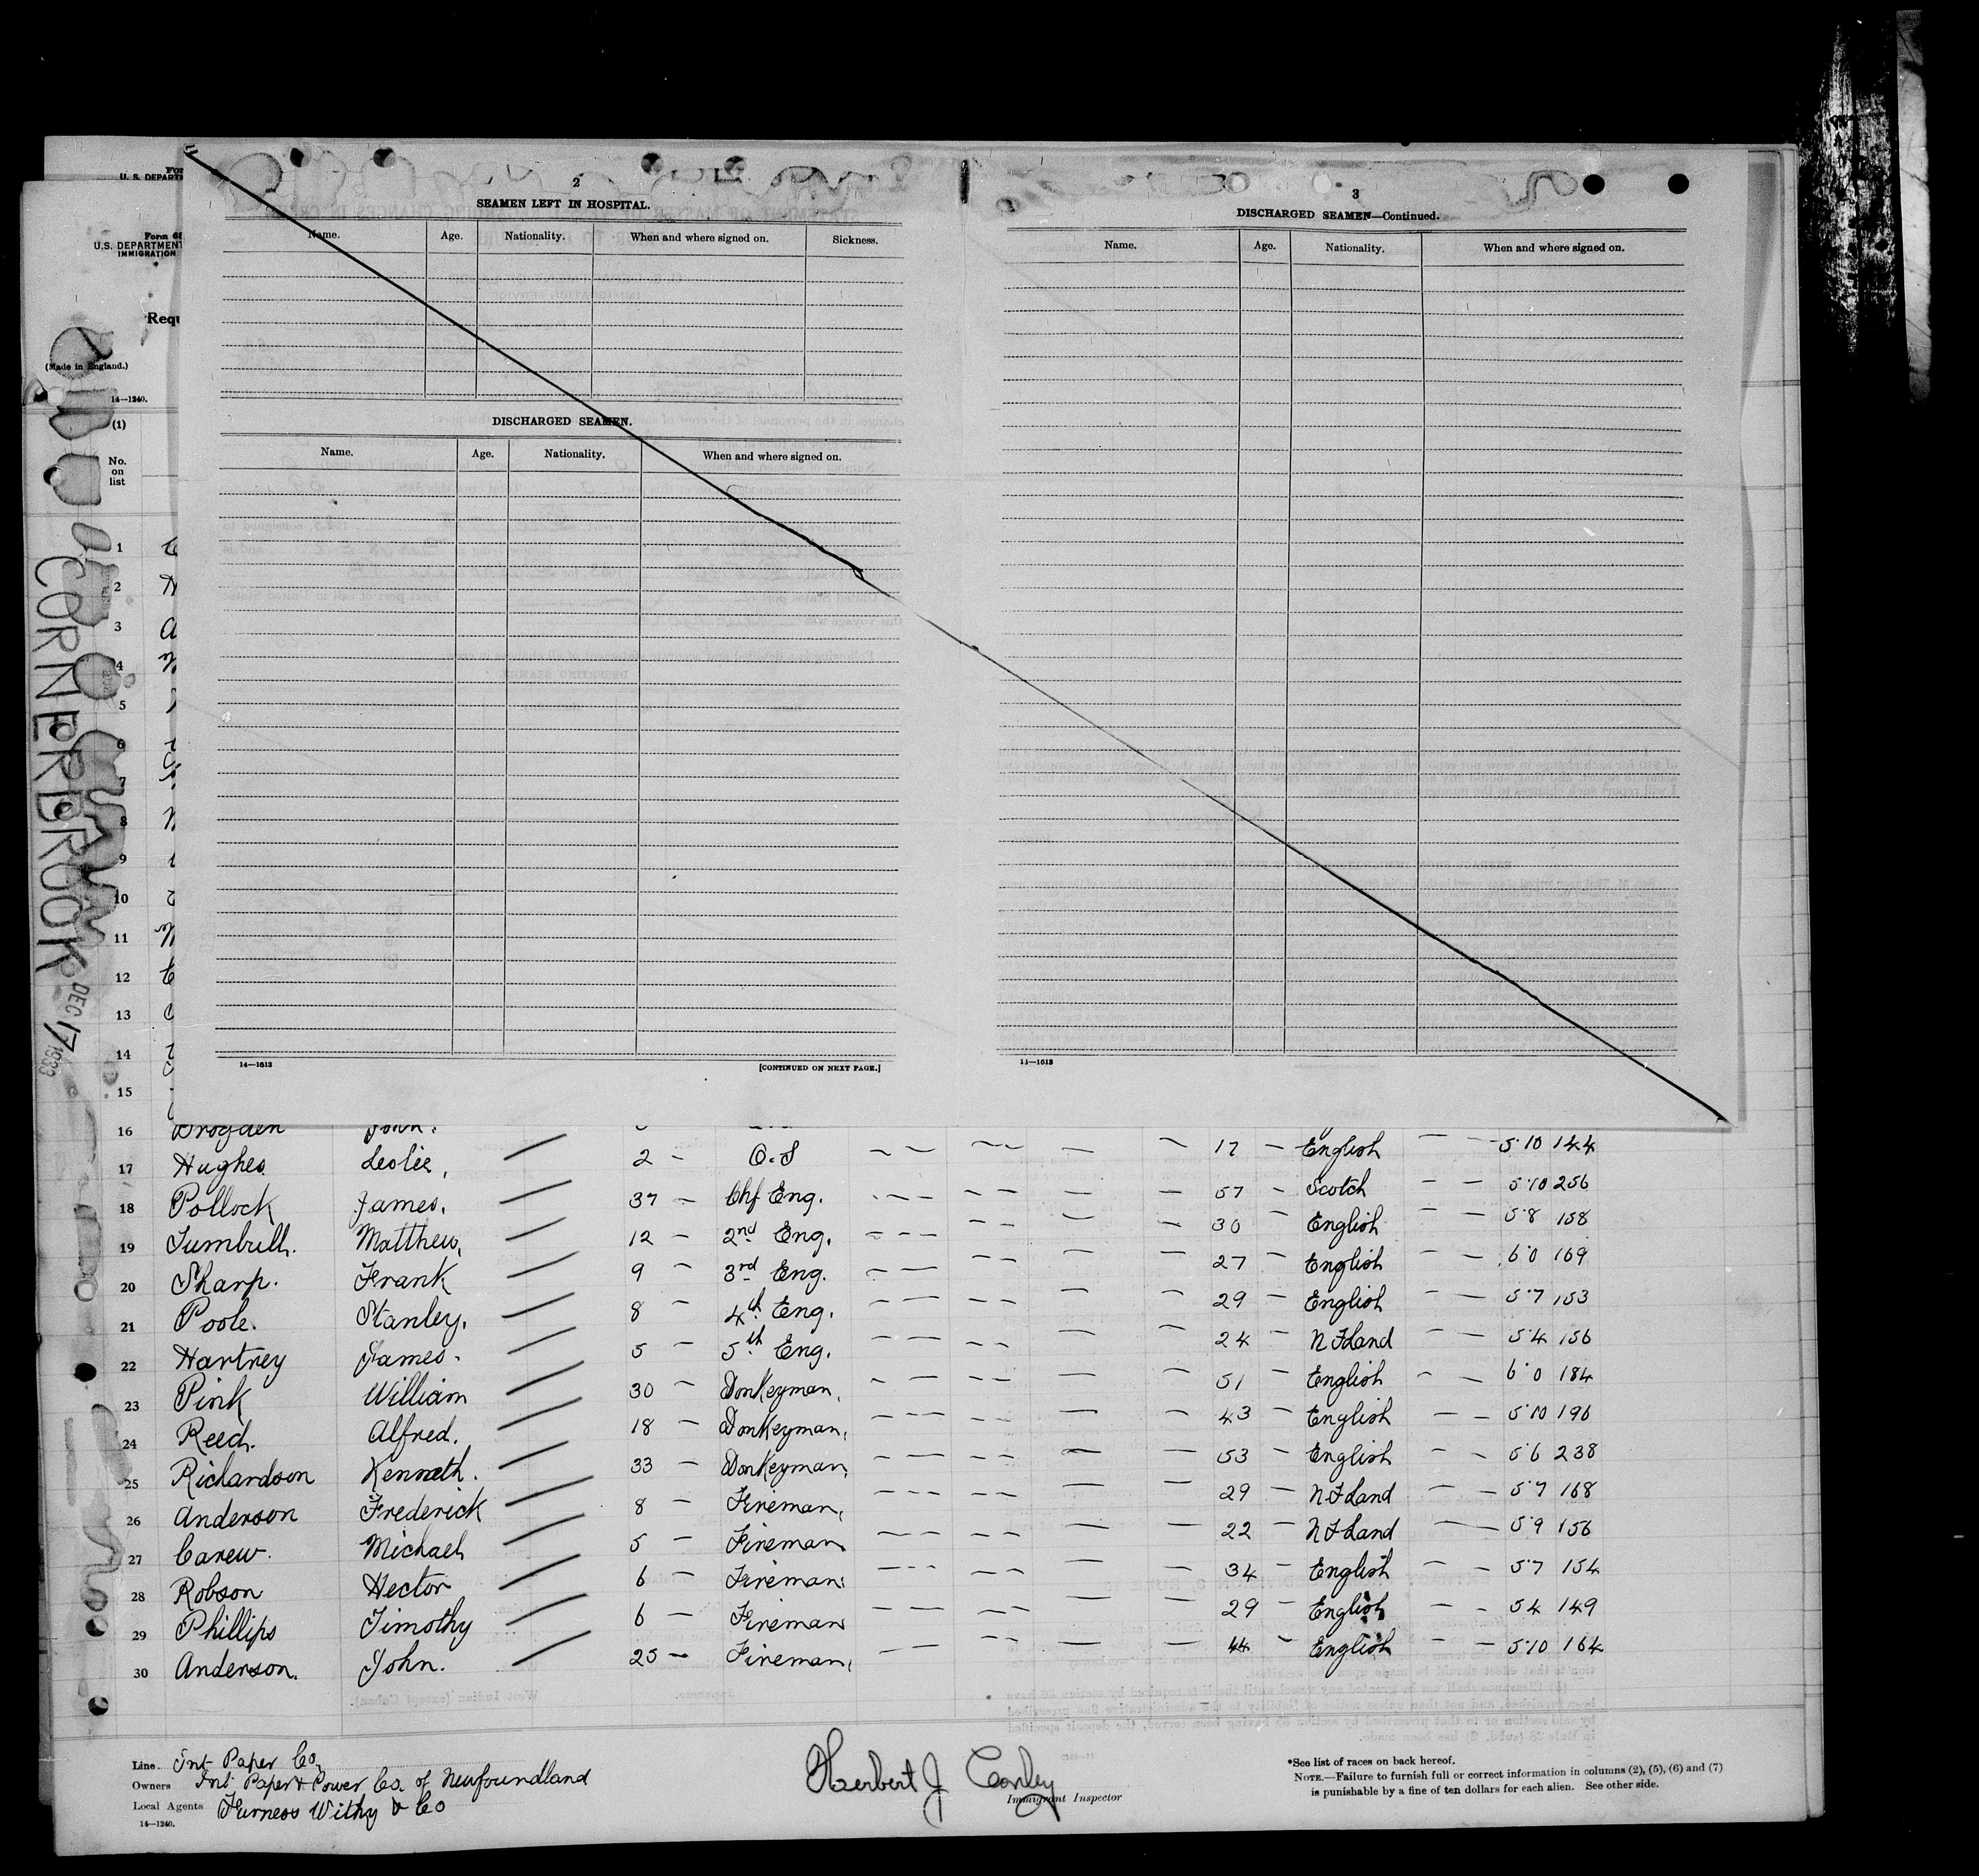 For
U. S. DEPART
Form 68
U.S. DEPARTMENT
IMMIGRATION
Requ
(Made in England.)
14—1240.
(1)
No.
on
list
CORNERBROOK
DEC 17 1933
2
SEAMEN LEFT IN HOSPITAL.
Name. Age. Nationality. When and where signed on. Sickness.
DISCHARGED SEAMEN.
Name. Age. Nationality. When and where signed on.
14—1613
[CONTINUED ON NEXT PAGE.]
3
DISCHARGED SEAMEN—Continued.
Name. Age. Nationality. When and where signed on.
14—1613
1
2
3
4
5
6
7
8
9
10
11
12
13
14
15
16 Brogden John.
17 Hughes Leslie, 2 — O.S — — — — — — 17 — English — — 5'10 144
18 Pollock James, 37 — Chf Eng. — — — — — — — 57 — Scotch — — 5'10 256
19 Turnbull. Matthew, 12 — 2nd Eng. — — — — — — — 30 — English — — 5'8 158
20 Sharp. Frank 9 — 3rd Eng. — — — — — — 27 — English — — 6'0 169
21 Poole. Stanley, 8 — 4th Eng. — — — — — — 29 — English — — 5'7 153
22 Hartney James. 5 — 5th Eng. — — — — — — 24 — N F Land — — 5'4 156
23 Pink William 30 — Donkeyman, — — — — — — 51 — English — — 6'0 184
24 Reed. Alfred. 18 — Donkeyman, — — — — — — 43 — English — — 5'10 196
25 Richardson Kenneth. 33 — Donkeyman, — — — — — — 53 — English — — 5'6 238
26 Anderson Frederick 8 — Fireman, — — — — — — 29 — N F Land — — 5'7 168
27 Carew. Michael 5 — Fireman — — — — — — 22 — N F Land — — 5'9 156
28 Robson Hector 6 — Fireman — — — — — — 34 — English — — 5'7 154
29 Phillips Timothy 6 — Fireman — — — — — — 29 — English — — 5 4 149
30 Anderson. John. 25 — Fireman, — — — — — — 44 — English — — 5'10 164
Line Int Paper Co,
Owners Int Paper & Power Co. of Newfoundland
Local Agents Furness Withy & Co
14—1240.
Herbert J Conley
Immigrant Inspector
*See list of races on back hereof.
NOTE.—Failure to furnish full or correct information in columns (2), (5), (6) and (7)
is punishable by a fine of ten dollars for each alien. See other side.